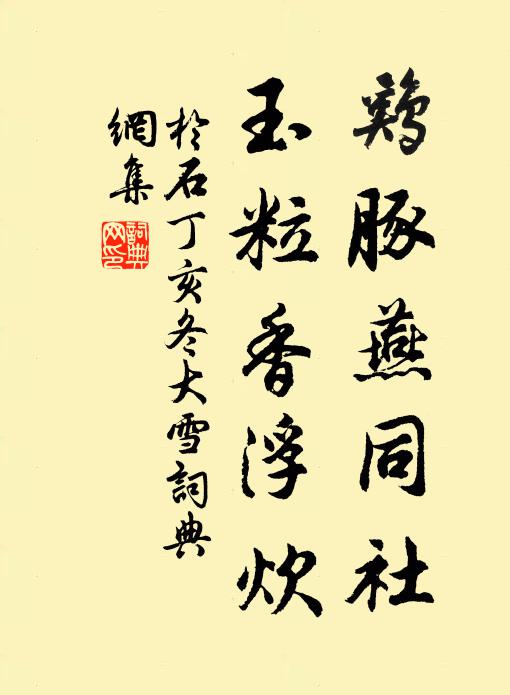 鷄豚燕同社
玉粒香浮炊
於石丁亥冬大雪詞典
網集
詞典
网印